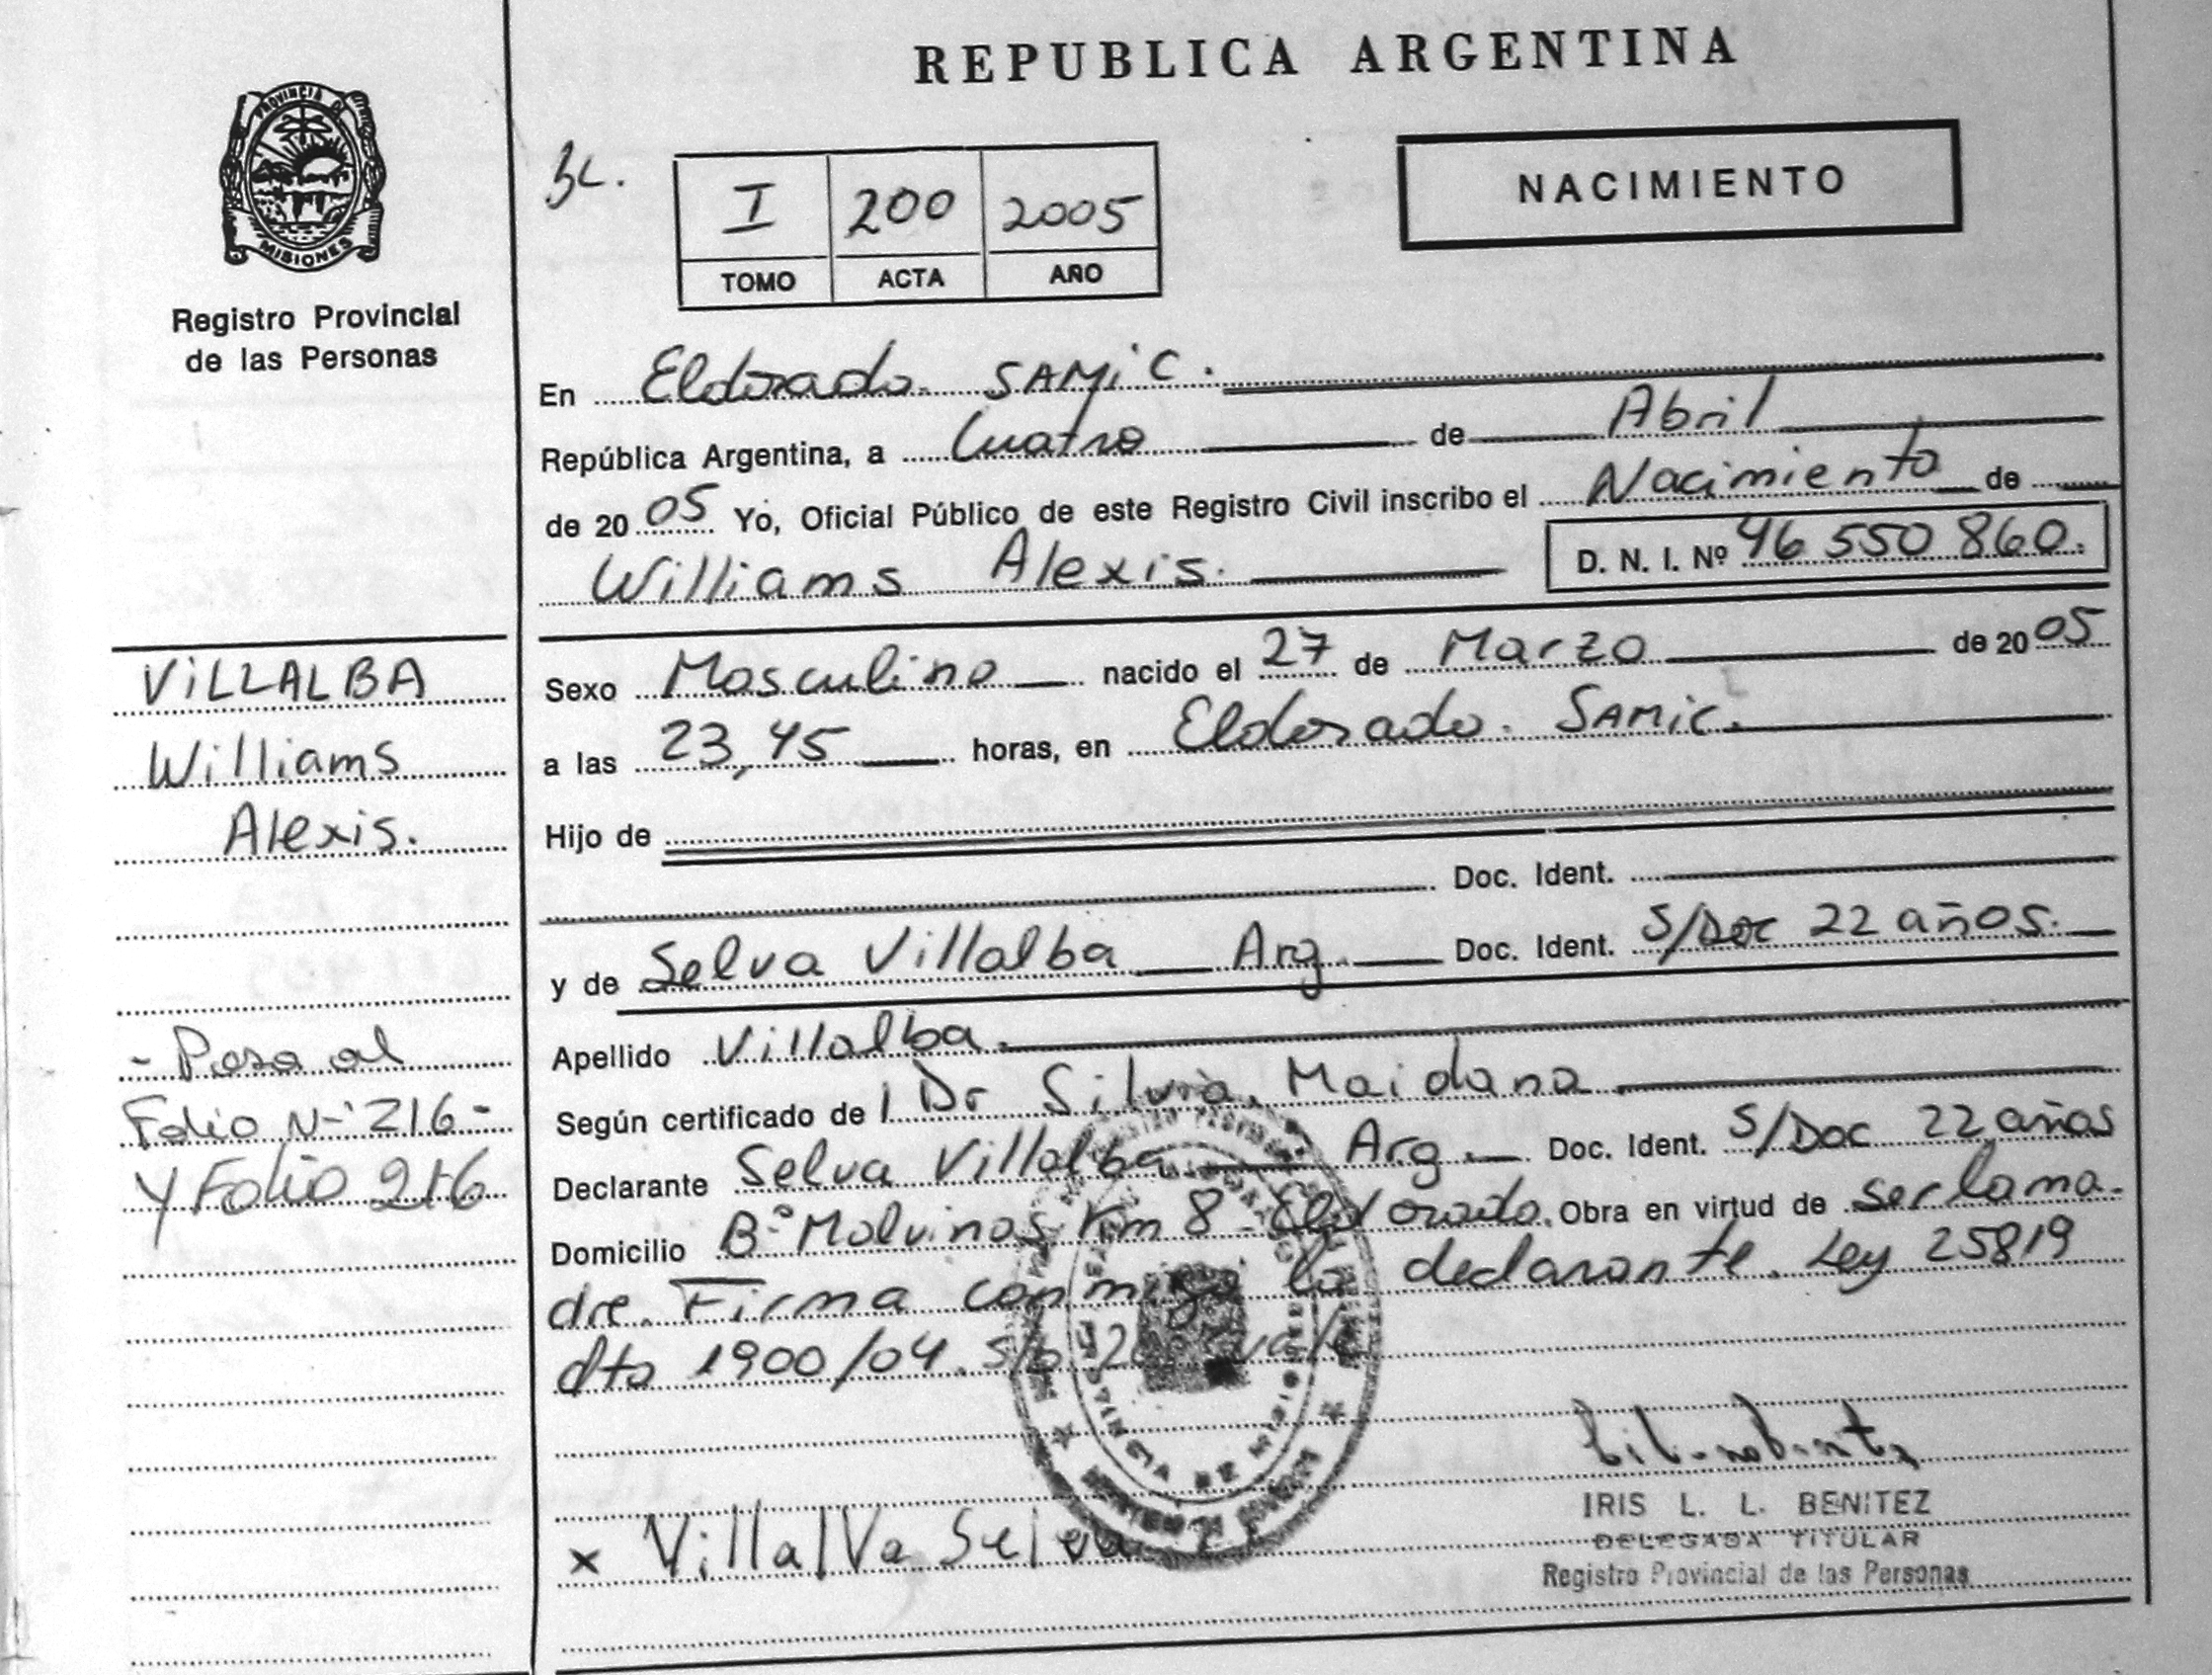 REPUBLICA ARGENTINA
PROVINCIA DE
MISIONES
Registro Provincial
de las Personas
I 200 2005
TOMO ACTA AÑO
NACIMIENTO
En Eldorado. SAMiC.
República Argentina, a Cuatro de Abril
de 2005 Yo, Oficial Público de este Registro Civil inscribo el Nacimiento de
Williams Alexis. D. N. I. Nº 46 550 860.
VILLALBA
Williams
Alexis.
Sexo Masculino nacido el 27 de Marzo de 2005
a las 23,45 horas, en Eldorado. SAMiC.
Hijo de
Doc. Ident.
y de Selva Villalba Arg. Doc. Ident. S/Doc 22 años.
Apellido Villalba.
- Pasa al
Folio N-º 216 -
Y Folio 216
Según certificado de Dr Silvia Maidana
Declarante Selva Villalba Arg. Doc. Ident. S/Doc 22 años
Domicilio Bº Malvinas Km 8 - Eldorado. Obra en virtud de ser la ma-
dre. Firma conmigo la declarante. Ley 25819
dto 1900/04.
x VillalVa Selva
IRIS L. L. BENITEZ
DELEGADA TITULAR
Registro Provincial de las Personas
PROVINCIA DE MISIONES